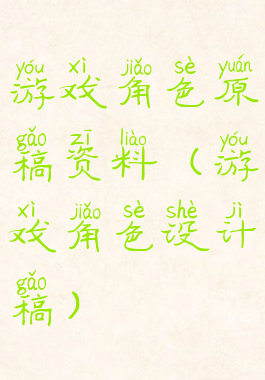 yóu xì jiǎo sè yuán
游戏角色原
gǎo zī liào yóu
稿资料（游
xì jiǎo sè shè jì
戏角色设计
gǎo
稿）